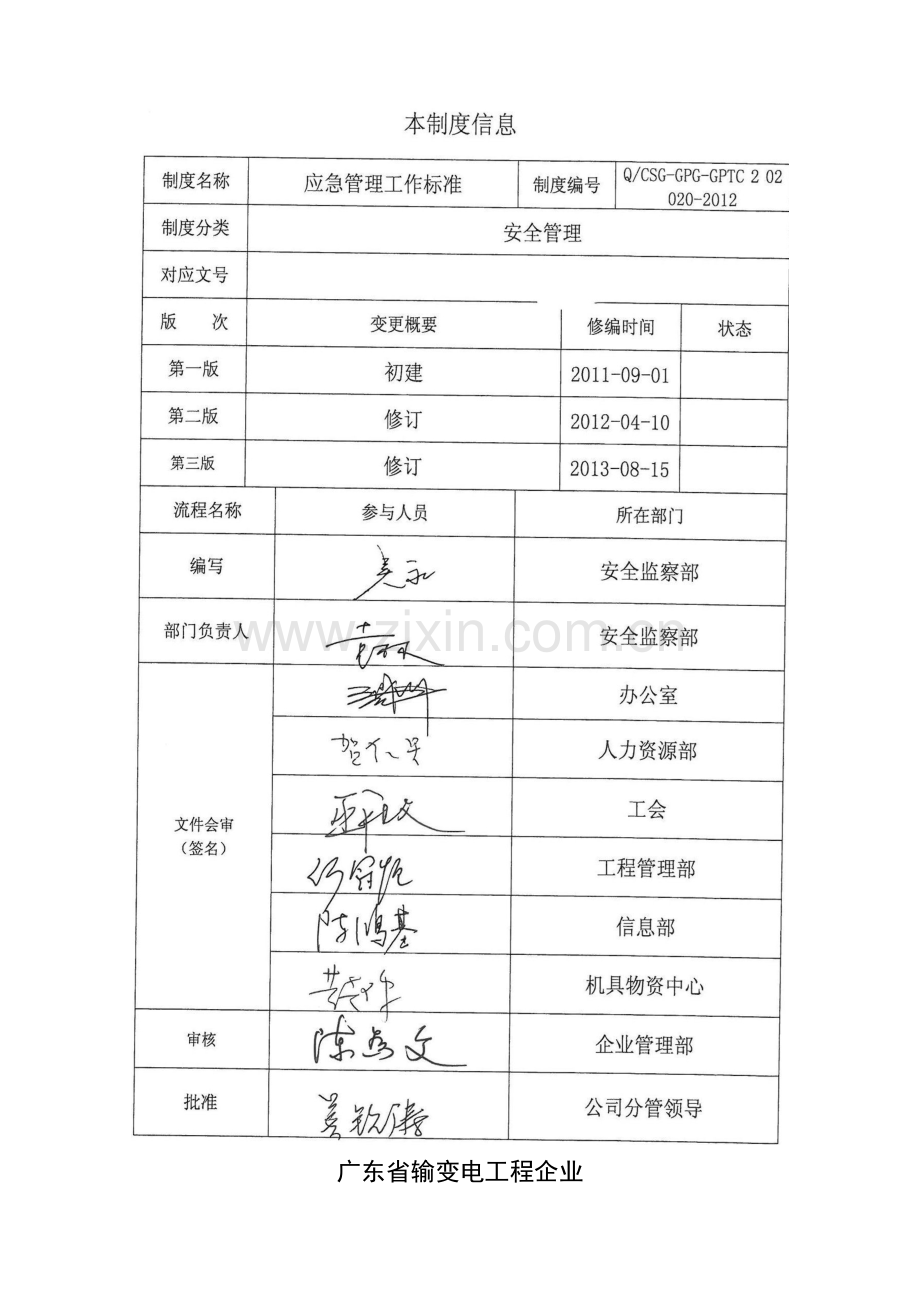 本制度信息
制度名称 应急管理工作标准 制度编号 Q/CSG-GPG-GPTC 2 02
020-2012
制度分类 安全管理
对应文号
版 次 变更概要 修编时间 状态
第一版 初建 2011-09-01
第二版 修订 2012-04-10
第三版 修订 2013-08-15
流程名称 参与人员 所在部门
编写 安全监察部
部门负责人 安全监察部
www.zixin.com.cn
办公室
人力资源部
工会
文件会审
(签名)
工程管理部
陈鸿基 信息部
机具物资中心
审核 企业管理部
批准 公司分管领导
广东省输变电工程企业